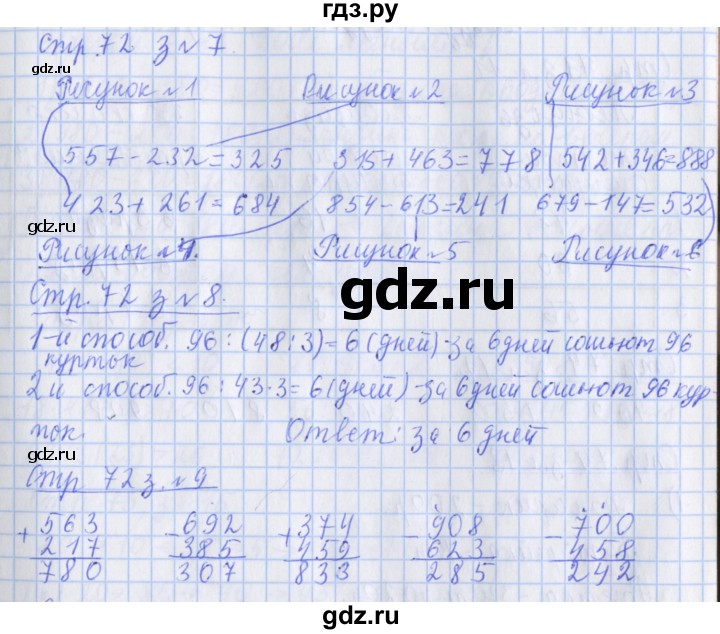 гдз.ру
Стр. 72 з № 7.
gdz.ru
gdz.ru
Рисунок № 1 Рисунок № 2 Рисунок № 3
557 - 232 = 325 315 + 463 = 778 542 + 346 = 888
423 + 261 = 684 854 - 613 = 241 679 - 147 = 532
gdz.ru
gdz.ru
Рисунок № 4. Рисунок № 5 Рисунок № 6
gdz.ru
Стр. 72 з № 8.
1-й способ. 96 : (48 : 3) = 6 (дней) - за 6 дней сошьют 96
курток
2 й способ. 96 : 43 · 3 = 6 (дней) - за 6 дней сошьют 96 кур-
ток. Ответ: за 6 дней
gdz.ru
gdz.ru
Стр 72 з. № 9
+ 563 - 692 + 374 - 908 - 700
217 385 459 623 458
780 307 833 285 242
gdz.ru
gdz.ru
gdz.ru